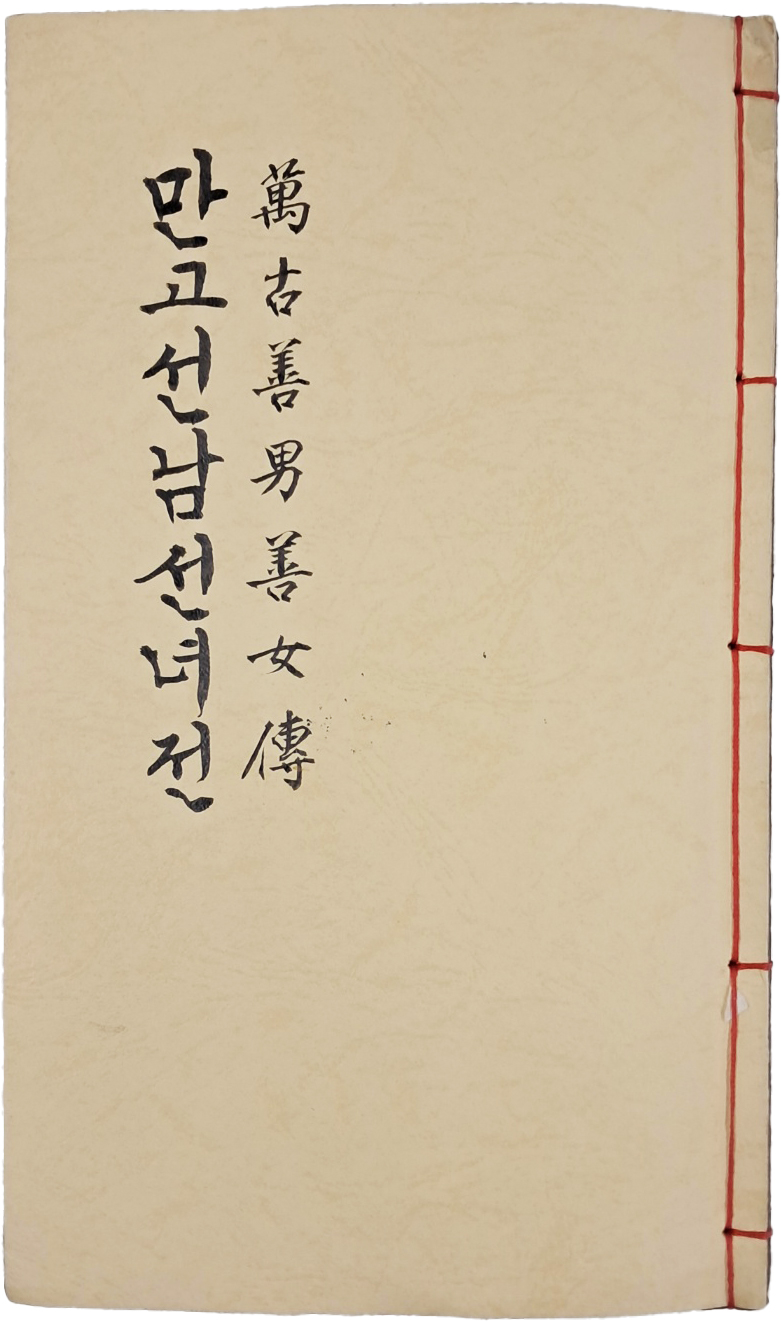 萬古善男善女傳
만고선남선녀전